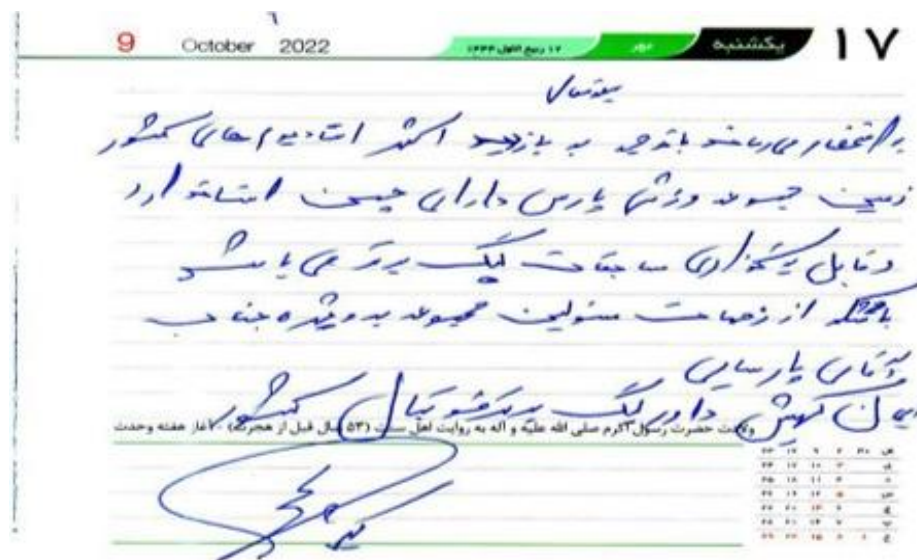 9 October 2022 ۱۲ ربیع الاول ۱۴۴۴ مهر یکشنبه ۱۷
بسمه تعالی
به استحضار می‌رساند باتوجه به بازدید اکثر استادیوم‌های کشور
زمین مجموعه ورزشی پارس دارای چمن استاندارد
و قابل برگزاری مسابقات لیگ برتر می‌باشد
باتشکر از زحمات مسئولین مجموعه به ویژه جناب
آقای پارسایی
کهتری داور لیگ برتر فوتبال کشور
ولادت حضرت رسول اکرم صلی الله علیه و آله به روایت اهل سنت (۵۳ سال قبل از هجرت) - آغاز هفته وحدت